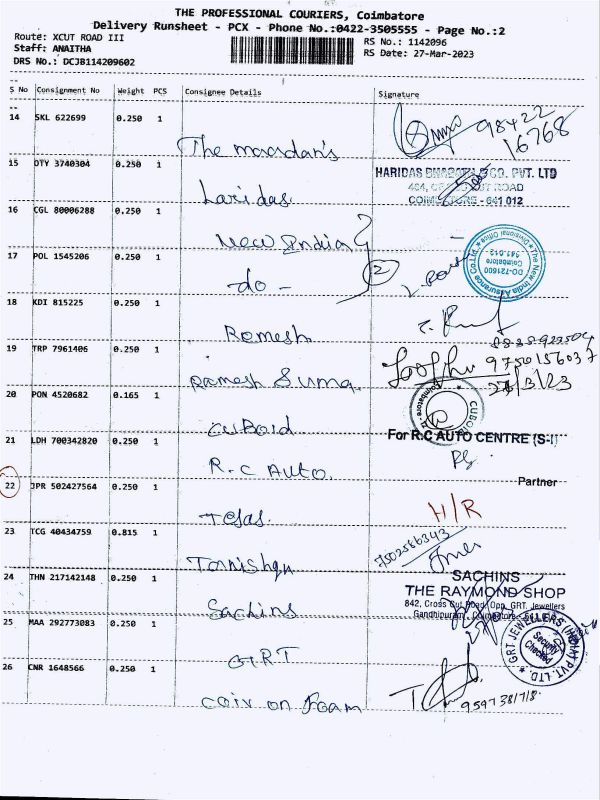 THE PROFESSIONAL COURIERS, Coimbatore
Delivery Runsheet - PCX - Phone No.:0422-3505555 - Page No.:2
Route: XCUT ROAD III
RS No.: 1142096
Staff: ANAITHA
RS Date: 27-Mar-2023
DRS No.: DCJB114209602
S No Consignment No Weight PCS Consignee Details Signature
14 SKL 622699 0.250 1
98422
16768
The
15 OTY 3740304 0.250 1
HARIDAS & CO. PVT. LTD
404, ROAD
COIMBATORE - 641 012
Haridas
16 CGL 80006288 0.250 1
New India
The New India Assurance Co.Ltd.
Divisional Office
DO-721600
Coimbatore
641 012
17 POL 1545206 0.250 1
2
-do-
18 KDI 815225 0.250 1
Romesh
19 TRP 7961406 0.250 1
9750156037
27/3/23
Ramesh Suma
20 PON 4520682 0.165 1
Coimbatore
CUBOID
21 LDH 700342820 0.250 1
For R.C AUTO CENTRE (S-I)
R.C Auto.
22 JPR 502427564 0.250 1
Partner
H/R
Tejas.
23 TCG 40434759 0.815 1
7502586343
Tanishqu
24 THN 217142148 0.250 1
SACHINS
THE RAYMOND SHOP
842, Cross Cut Road, Opp. GRT. Jewellers
Gandhipuram, Coimbatore
Sachins
25 MAA 292773083 0.250 1
GRT JEWELLERS (INDIA) PVT. LTD.
Security
Checked
G.R.T
26 CNR 1648566 0.250 1
9597381718
Coir on Foam